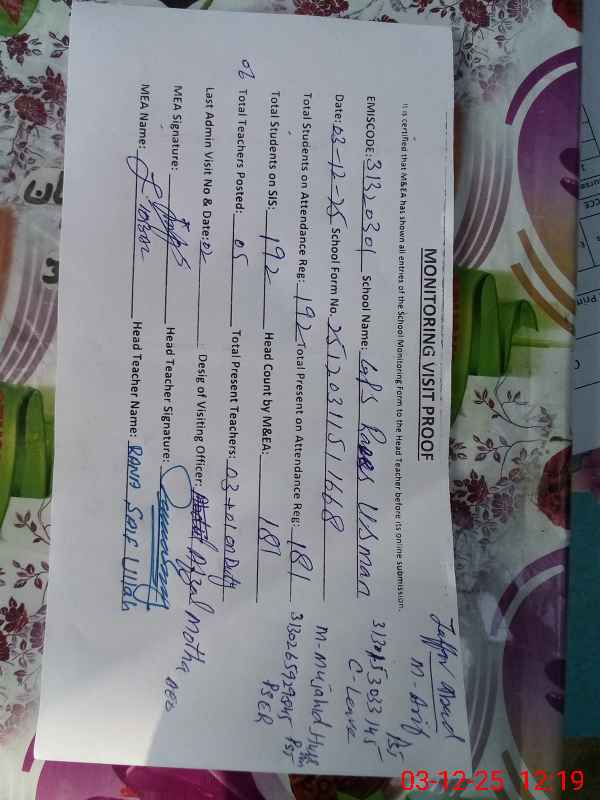 MONITORING VISIT PROOF
It is certified that M&EA has shown all entries of the School Monitoring Form to the Head Teacher before its online submission.
EMISCODE: 31320301 School Name: GPS Usman
Date: 03-12-25 School Form No. 25120311511668
Total Students on Attendance Reg: 192 Total Present on Attendance Reg: 181
Total Students on SIS: 192 Head Count by M&EA: 181
02 Total Teachers Posted: 05 Total Present Teachers: 03 + 01 on Duty
Last Admin Visit No & Date: 02 Desig of Visiting Officer: Afzal Motha AEO
MEA Signature: Head Teacher Signature:
MEA Name: Head Teacher Name: RANA SAIF Ullah
M. Arif PST
C-Leave
M-Mujahid PST
PSER
03-12-25 12:19